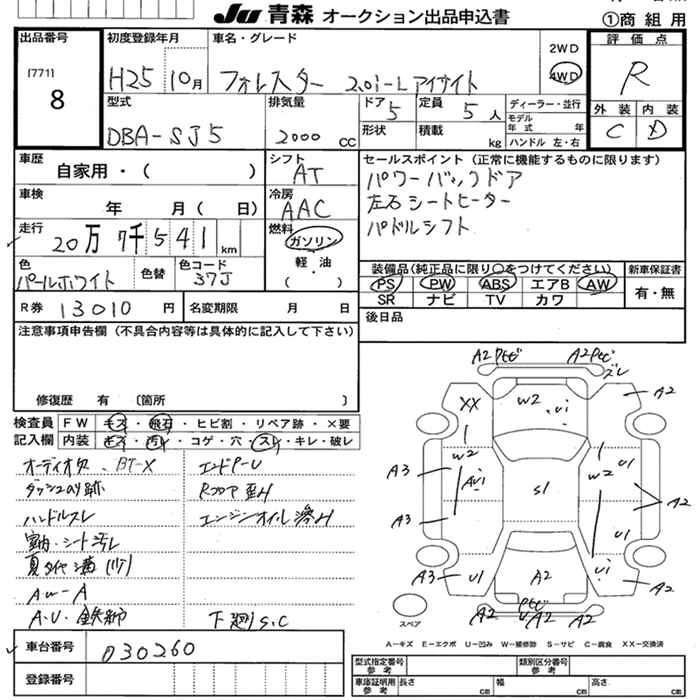 JU 青森 オークション出品申込書
①商組用
出品番号
[771]
8
初度登録年月
H25 10月
車名・グレード
フォレスター 2.0i-L アイサイト
2WD
4WD
評価点
R
外装 内装
C D
型式
DBA-SJ5
排気量
2000 CC
ドア 5
定員 5人
形状
積載 kg
ディーラー・並行
モデル年式 年
ハンドル 左・右
車歴
自家用・( )
シフト
AT
セールスポイント(正常に機能するものに限ります)
パワーバックドア
左右シートヒーター
パドルシフト
車検
年 月( 日)
冷房
AAC
走行
20万7千541km
燃料
ガソリン
軽・油
( )
色
パールホワイト
色替
色コード
37J
装備品(純正品に限り○をつけてください)
PS PW ABS エアB AW
SR ナビ TV カワ
新車保証書
有・無
R券 13010 円
名変期限 月 日
後日品
注意事項申告欄(不具合内容等は具体的に記入して下さい)
修復歴 有 〔箇所 〕
検査員記入欄
FW キズ・飛石・ヒビ割・リペア跡・×要
内装 キズ・汚レ・コゲ・穴・スレ・キレ・破レ
オーディオ欠、BT-X
ダッシュのり跡
ハンドルスレ
室内・シート汚レ
夏タイヤ溝
AW-A
エンドP-U
Rフロア歪み
エンジンオイル滲み
下廻りS.C
A2 A2 ズレ
XX W2 U1 A2
W2 W2 U1
A3 AU1 S1 A2
A3 U1
A3 U1 A2 U1 A2
A2 UA2 A2
スペア
A-キズ E-エクボ U-凹み W-補修跡 S-サビ C-腐食 XX-交換済
車台番号
030260
登録番号
型式指定番号 参考
類別区分番号 参考
車庫証明用 参考
長さ cm
幅 cm
高さ cm